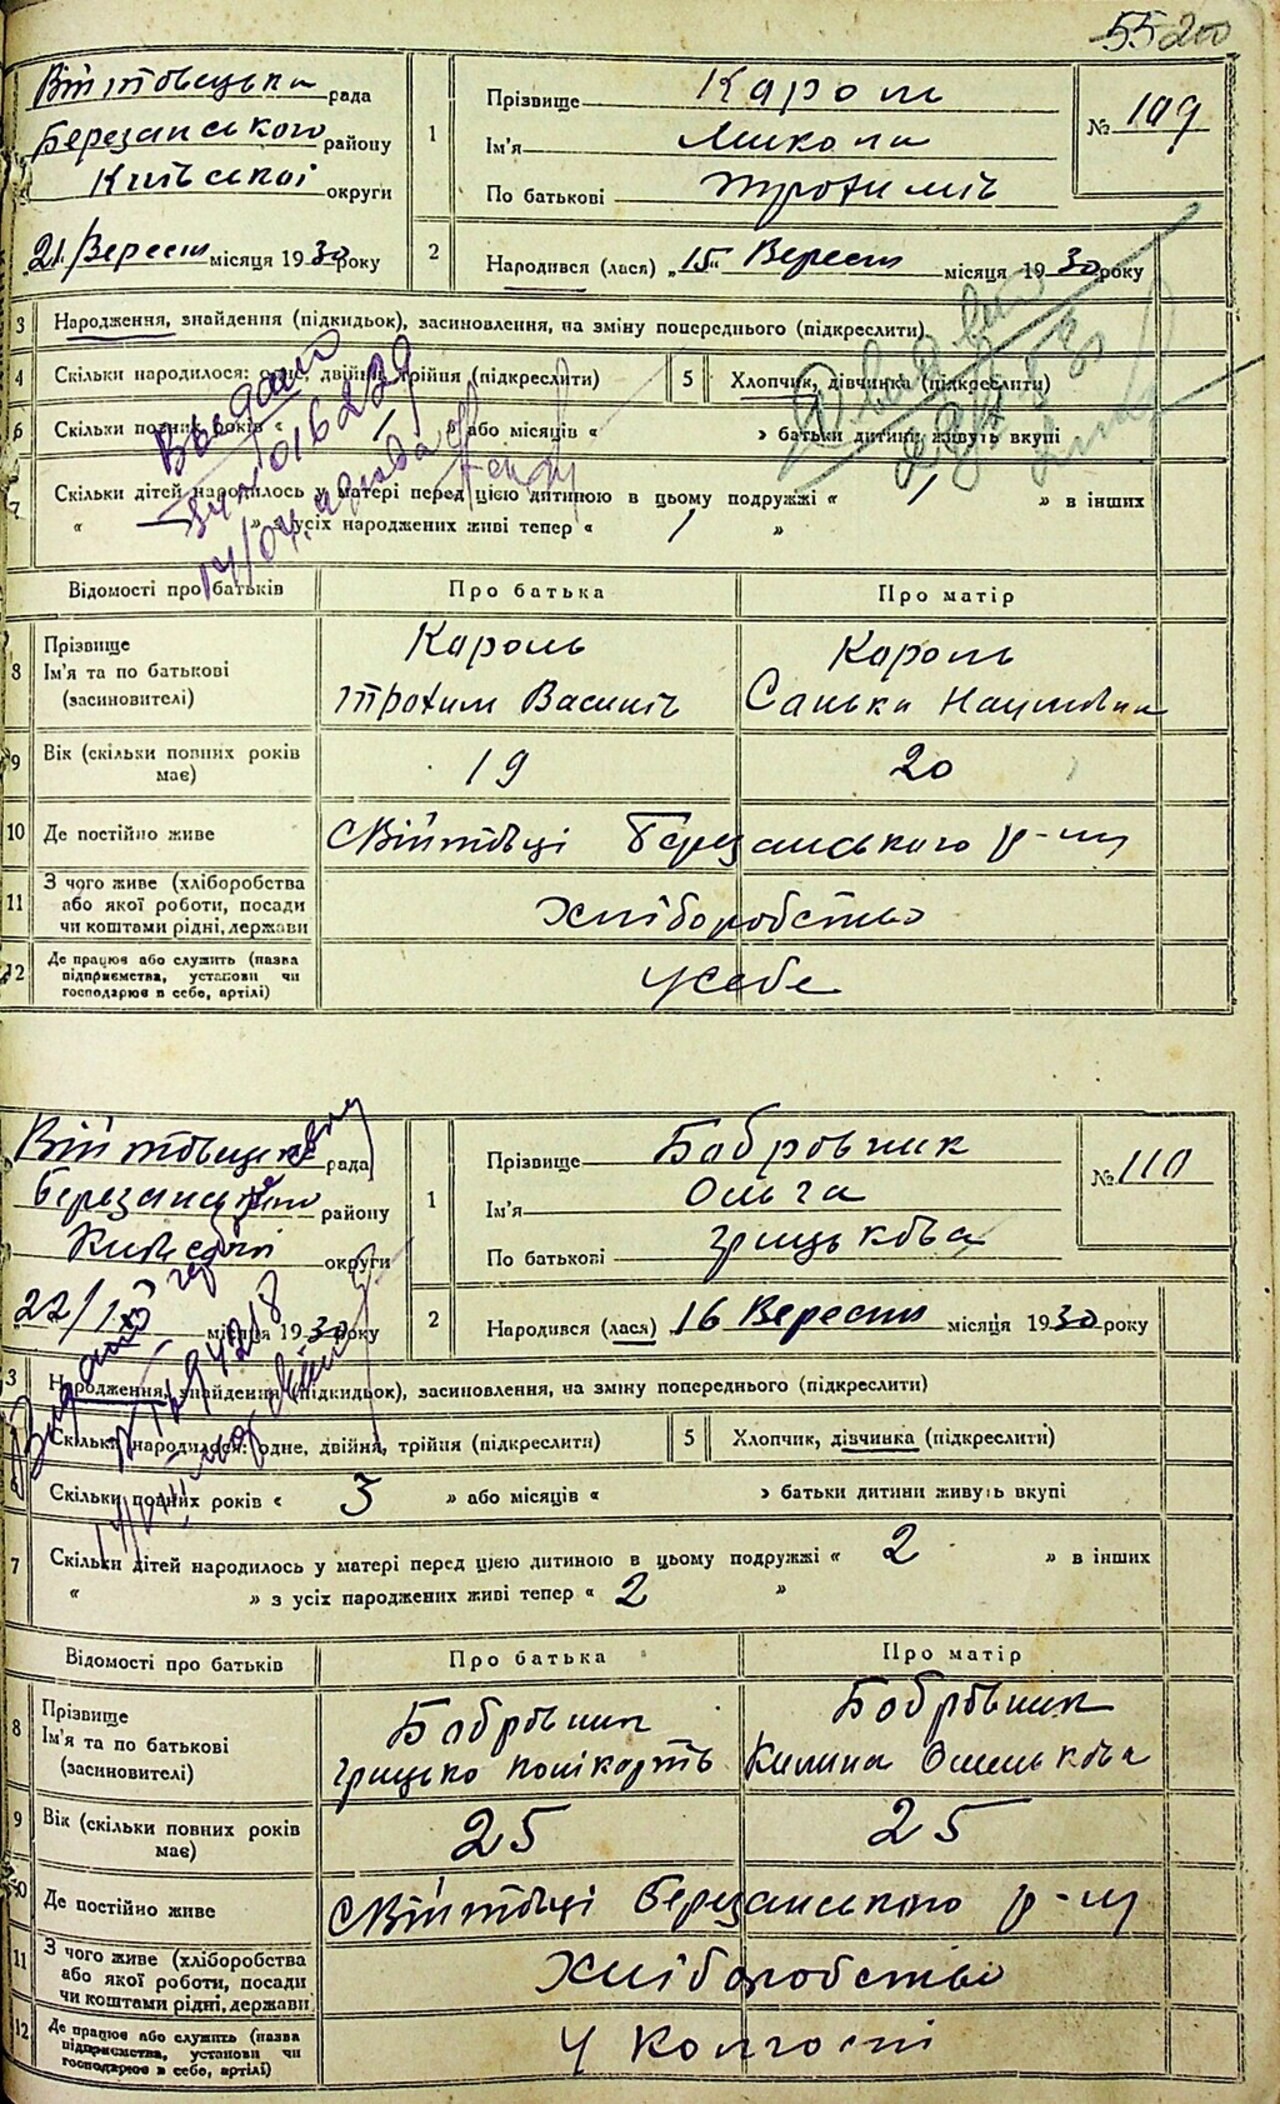 55 200
Війтовецька рада
Березанського району
Київської округи
„21./Вересня місяця 1930 року
1
Прізвище Король
Ім'я Микола
По батькові Трохимів
№ 109
2
Народився (лася) „15" Вересня місяця 1930 року
3 Народження, знайдення (підкидьок), засиновлення, на зміну попереднього (підкреслити)
4 Скільки народилося: одне, двійня, трійня (підкреслити)
5 Хлопчик, дівчинка (підкреслити)
6 Скільки повних років « » або місяців « » батьки дитини живуть вкупі
7 Скільки дітей народилось у матері перед цією дитиною в цьому подружжі « 1 » в інших
« — » з усіх народжених живі тепер « 1 »
Відомості про батьків Про батька Про матір
8 Прізвище Ім'я та по батькові (засиновителі)
Король Трохим Василів
Король Санька Наумівна
9 Вік (скільки повних років має) 19 20
10 Де постійно живе с Війтовці Березанського р-ну
11 З чого живе (хліборобства або якої роботи, посади чи коштами рідні, держави Хліборобство
12 Де працює або служить (назва підприємства, установи чи господарює в себе, артілі) У себе
Выдано
016229
Війтовецька рада
Березанського району
Київської округи
„22/IX місяця 1930 року
1
Прізвище Бобровник
Ім'я Ольга
По батькові Грицькова
№ 110
2
Народився (лася) „16 Вересня місяця 1930 року
3 Народження, знайдення (підкидьок), засиновлення, на зміну попереднього (підкреслити)
Скільки народилося: одне, двійня, трійня (підкреслити)
5 Хлопчик, дівчинка (підкреслити)
Скільки повних років « 3 » або місяців « » батьки дитини живуть вкупі
7 Скільки дітей народилось у матері перед цією дитиною в цьому подружжі « 2 » в інших
« » з усіх народжених живі тепер « 2 »
Відомості про батьків Про батька Про матір
8 Прізвище Ім'я та по батькові (засиновителі)
Бобровник Грицько Полікартів
Бобровник Килина Омелькова
9 Вік (скільки повних років має) 25 25
10 Де постійно живе с Війтовці Березанського р-ну
11 З чого живе (хліборобства або якої роботи, посади чи коштами рідні, держави Хліборобство
12 Де працює або служить (назва підприємства, установи чи господарює в себе, артілі) У колгоспі
Видано